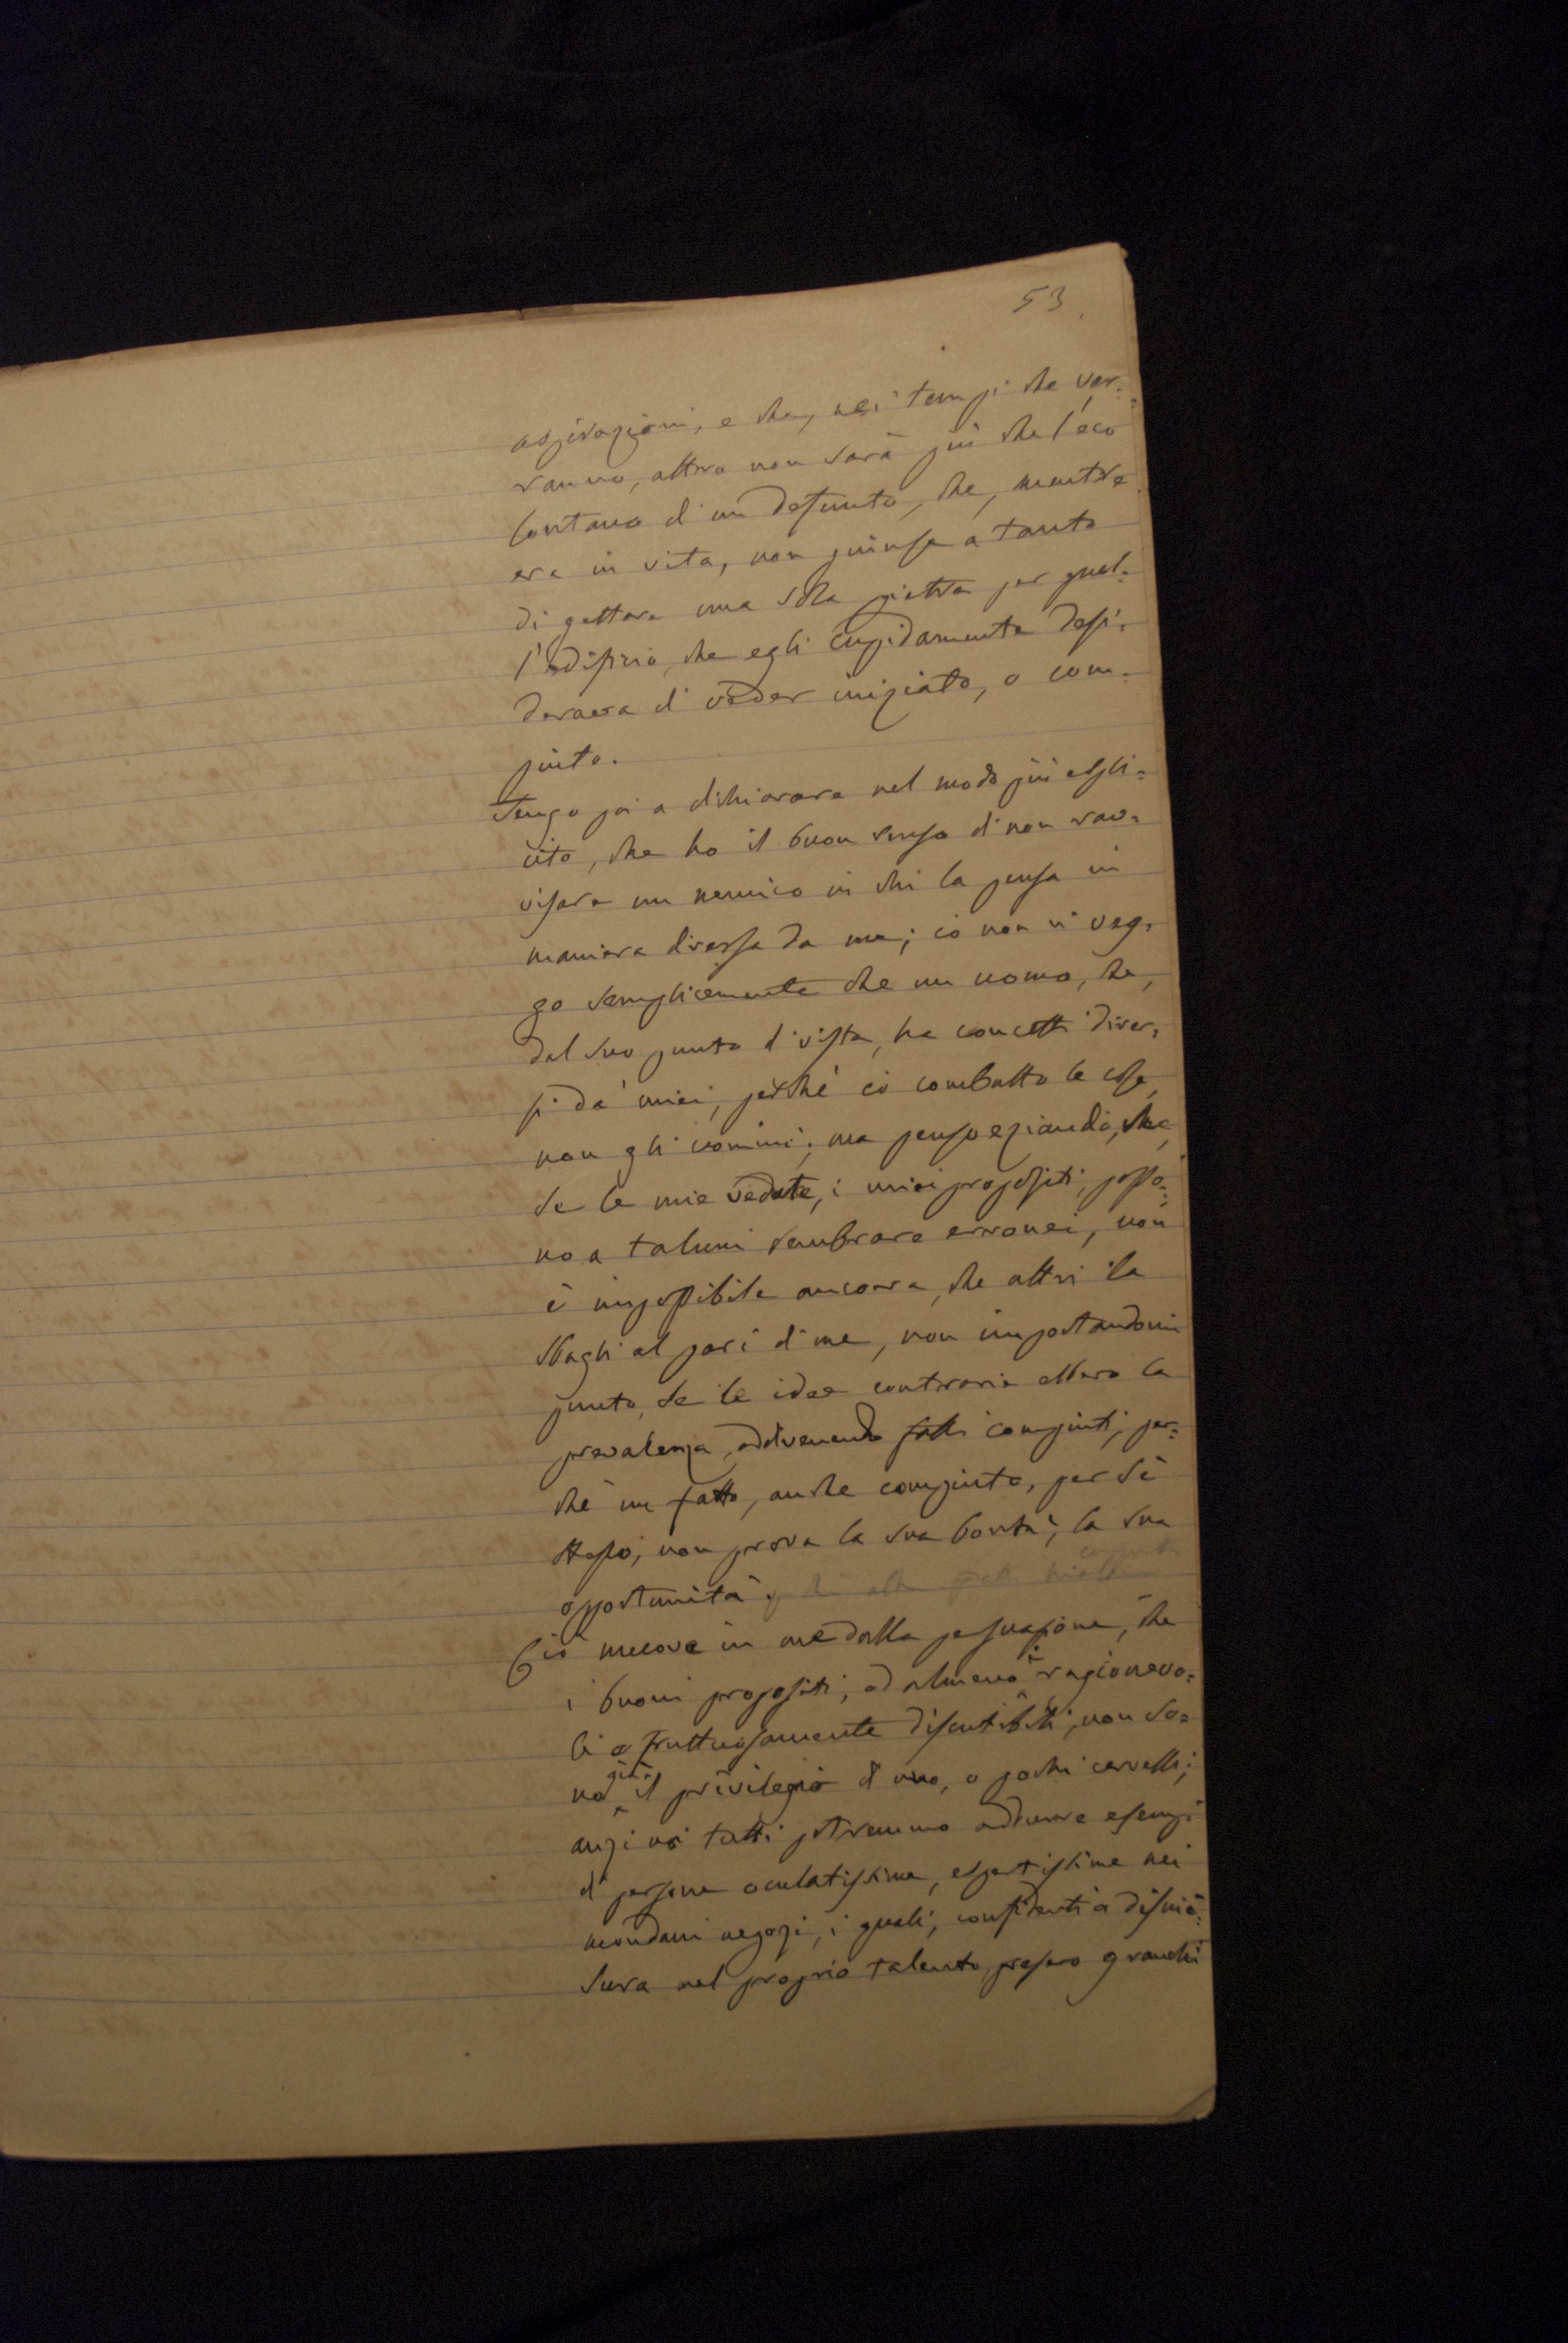 53.
aspirazioni, e che, nei tempi che ver=
ranno, altro non sarà più che l'eco
lontana di un defunto, che, mentre
era in vita, non giunse a tanto
di gettare una sola pietra per quel=
l'edifizio, che egli cupidamente desi=
derava di veder iniziato, o com=
piuto.
Tengo poi a dichiarare nel modo più espli=
cito, che ho il buon senso di non rav=
visare un nemico in chi la pensa in
maniera diversa da me; io non vi veg=
go semplicemente che un uomo, che,
dal suo punto di vista, ha concetti diver=
si da' miei, perchè io combatto le cose,
non gli uomini; ma penso eziandio, che,
se le mie vedute, i miei propositi, posso=
no a taluni sembrare erronei, non
è impossibile ancora, che altri la
sbagli al pari di me, non importandomi
punto, se le idee contrarie ebbero la
prevalenza, addivenendo fatti compiuti; per=
chè un fatto, anche compiuto, per sè
stesso, non prova la sua bontà, la sua
opportunità.
Ciò muove in me dalla persuasione, che
i buoni propositi, od almeno i ragionevo=
li e fruttuosamente discutibili, non so=
no già il privilegio di uno, o pochi cervelli;
anzi noi tutti potremmo addurre esempi
di persone oculatissime, espertissime nei
mondani negozi, i quali, confidenti a dismi=
sura nel proprio talento, presero granchi